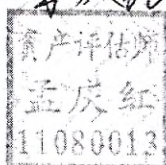 资产评估师
孟庆红
11080013